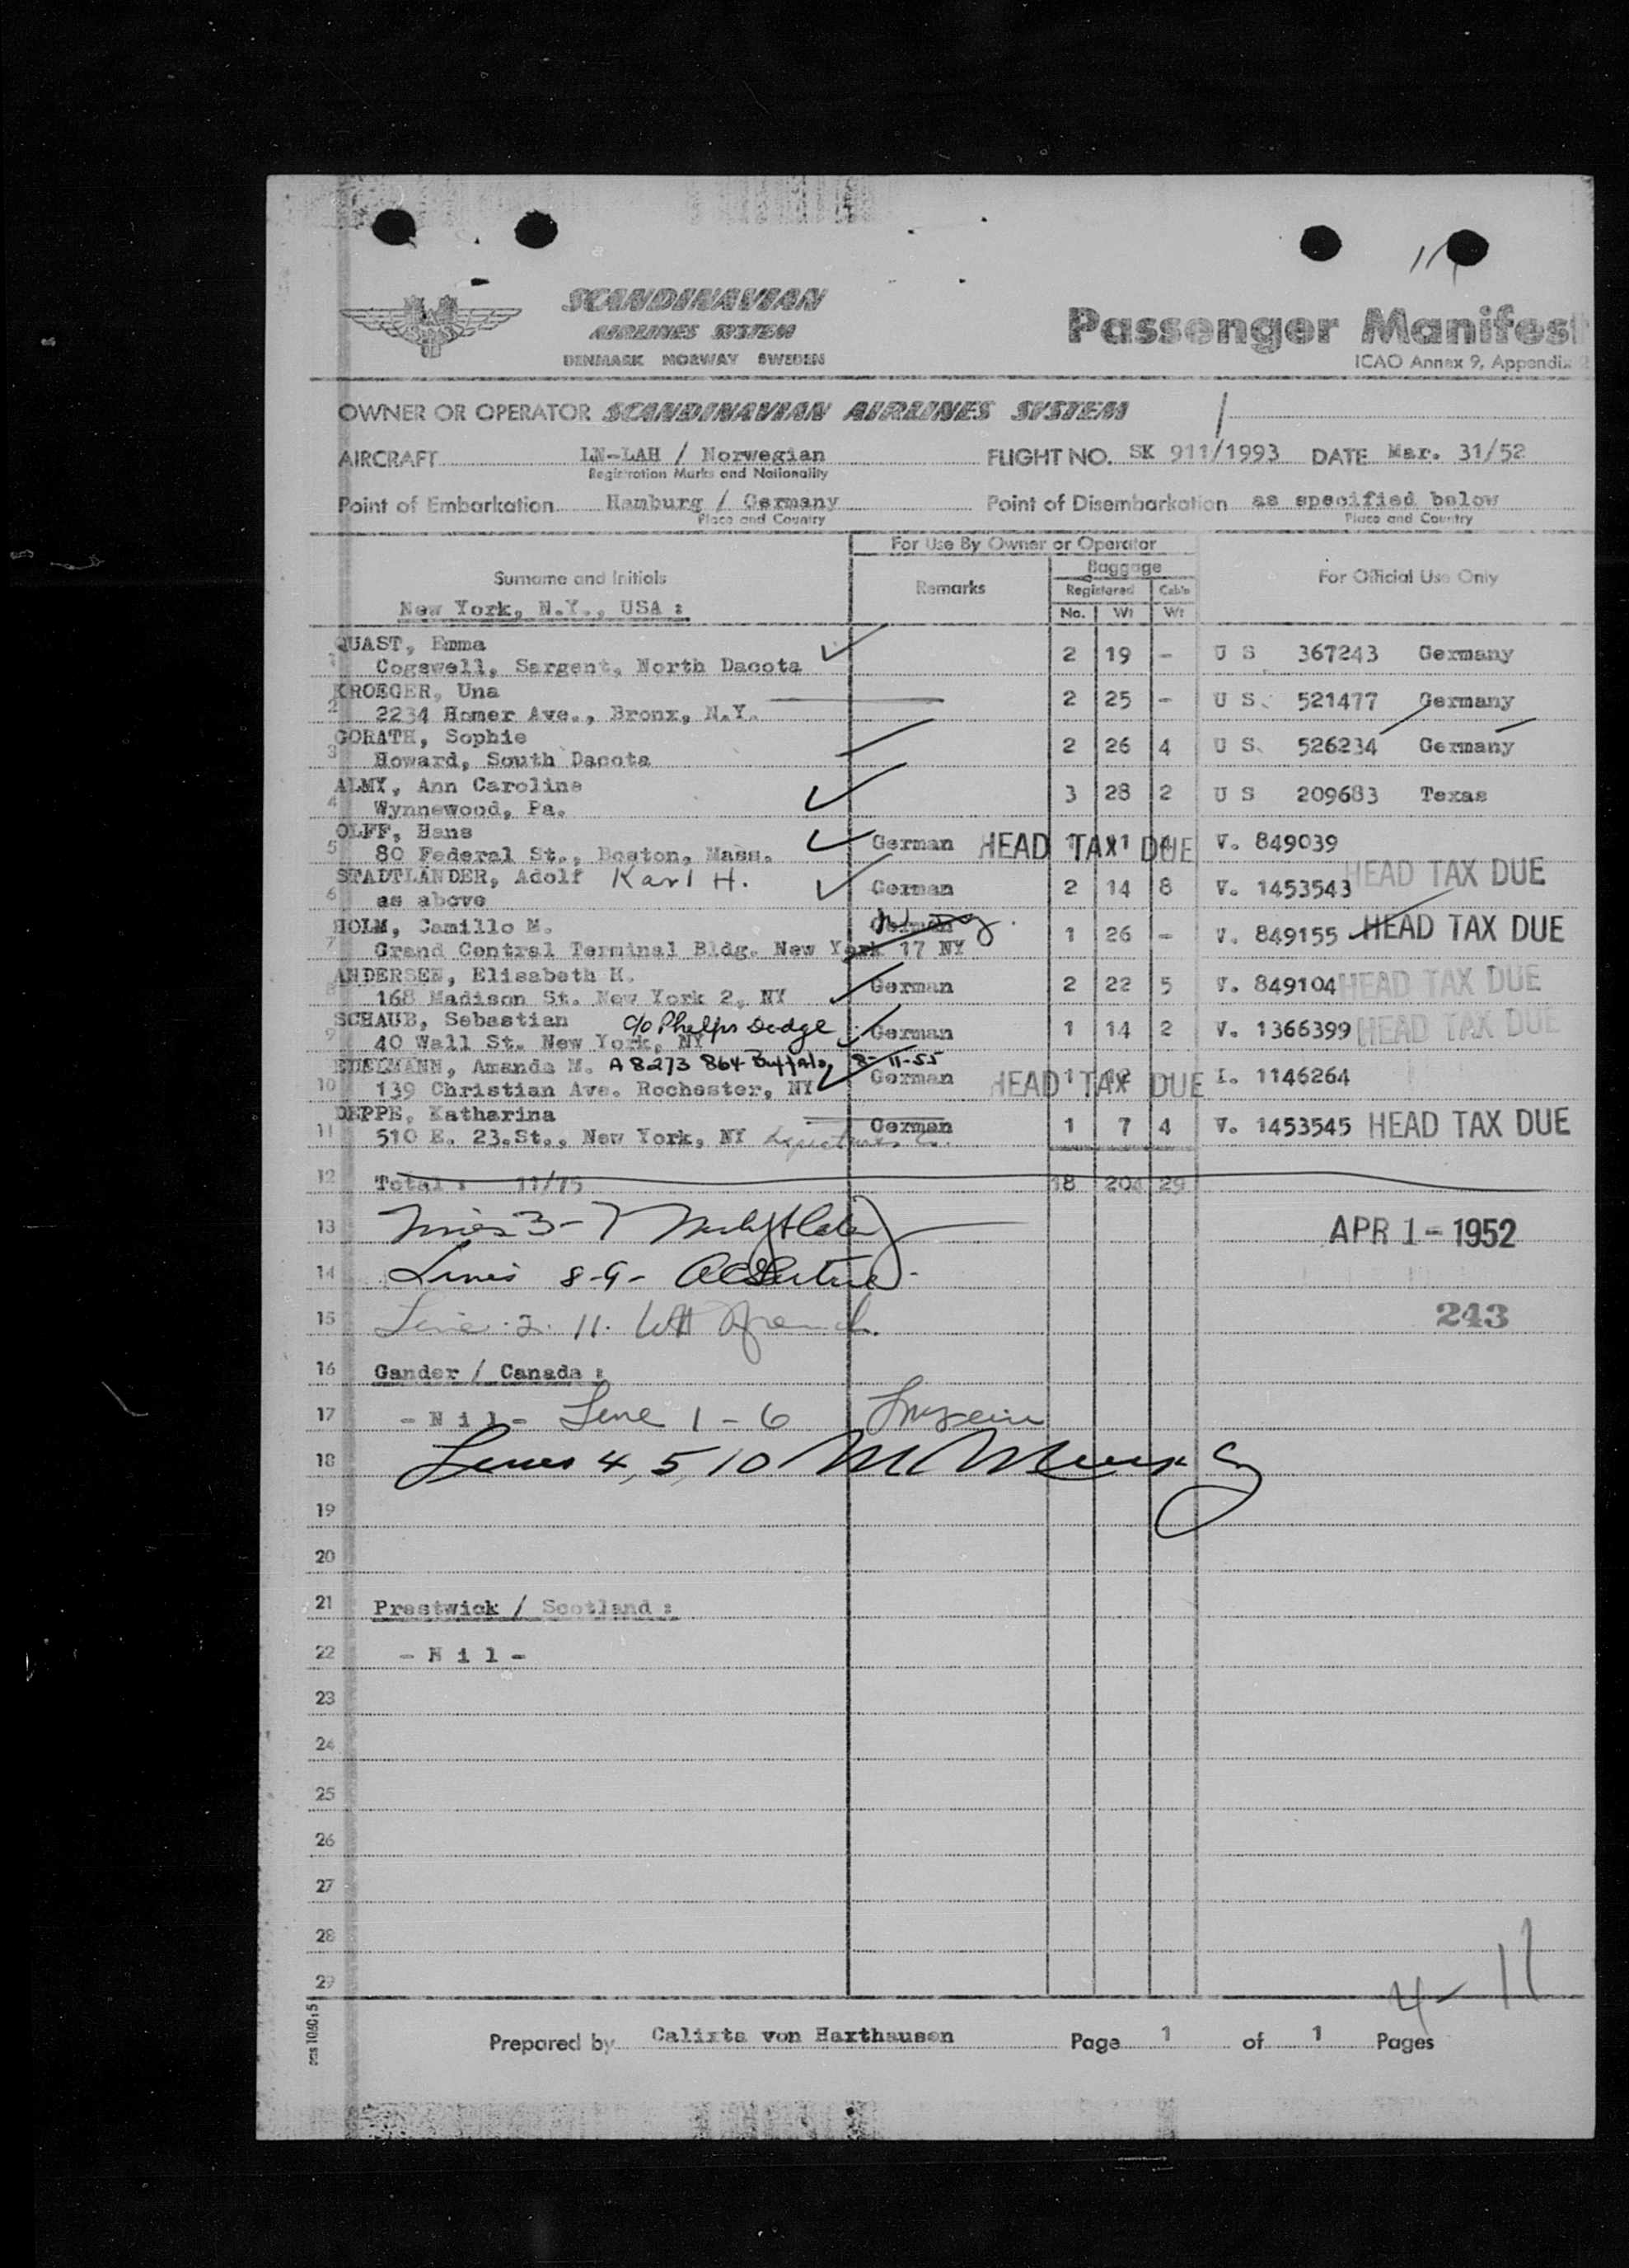 SCANDINAVIAN
AIRLINES SYSTEM
DENMARK NORWAY SWEDEN
Passenger Manifest
ICAO Annex 9, Appendix
OWNER OR OPERATOR SCANDINAVIAN AIRLINES SYSTEM
AIRCRAFT LN-LAH / Norwegian FLIGHT NO. SK 911/1993 DATE Mar. 31/52
Registration Marks and Nationality
Point of Embarkation Hamburg / Germany Point of Disembarkation as specified below
Place and Country Place and Country
For Use By Owner or Operator
Surname and Initials Remarks Baggage For Official Use Only
Registered Cabin
New York, N.Y., USA : No. Wt Wt
QUAST, Emma
1 Cogswell, Sargent, North Dacota 2 19 - U S 367243 Germany
KROEGER, Una
2 2234 Homer Ave., Bronx, N.Y. 2 25 - U S. 521477 Germany
GORATH, Sophie
3 Howard, South Dacota 2 26 4 U S. 526234 Germany
ALMY, Ann Caroline
4 Wynnewood, Pa. 3 28 2 U S 209683 Texas
OLFF, Hans
5 80 Federal St., Boston, Mass. German HEAD TAX DUE 1 11 V. 849039
STADTLÄNDER, Adolf Karl H. HEAD TAX DUE
6 as above German 2 14 8 V. 1453543
HOLM, Camillo M. German
7 Grand Central Terminal Bldg. New York 17 NY 1 26 - V. 849155 HEAD TAX DUE
ANDERSEN, Elisabeth H.
8 168 Madison St. New York 2, NY German 2 22 5 V. 849104 HEAD TAX DUE
SCHAUB, Sebastian c/o Phelps Dodge
9 40 Wall St. New York, NY German 1 14 2 V. 1366399 HEAD TAX DUE
EDELMANN, Amanda M. A 8273 864 Buffalo, 8-11-55
10 139 Christian Ave. Rochester, NY German HEAD TAX DUE 1 12 I. 1146264
DEPPE, Katharina
11 510 E. 23.St., New York, NY German 1 7 4 V. 1453545 HEAD TAX DUE
12 Total : 11/75 18 204 29
13 3-7 APR 1 - 1952
14 Lines 8-9-
15 Line 2. 11. 243
16 Gander / Canada :
17 - N i l - Line 1 - 6
18 Lines 4, 5, 10
19
20
21 Prestwick / Scotland :
22 - N i l -
23
24
25
26
27
28
29
4 - 11
Prepared by Calixta von Haxthausen Page 1 of 1 Pages